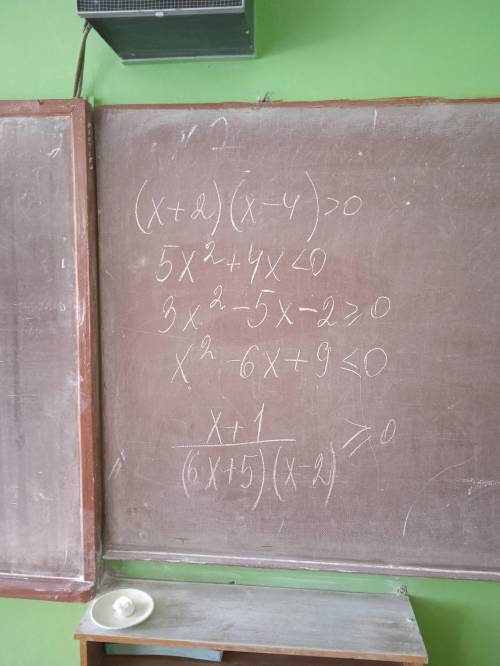 (x+2)(x-4)>0
5x²+4x<0
3x²-5x-2≥0
x²-6x+9≤0
x+1
(6x+5)(x-2) ≥0